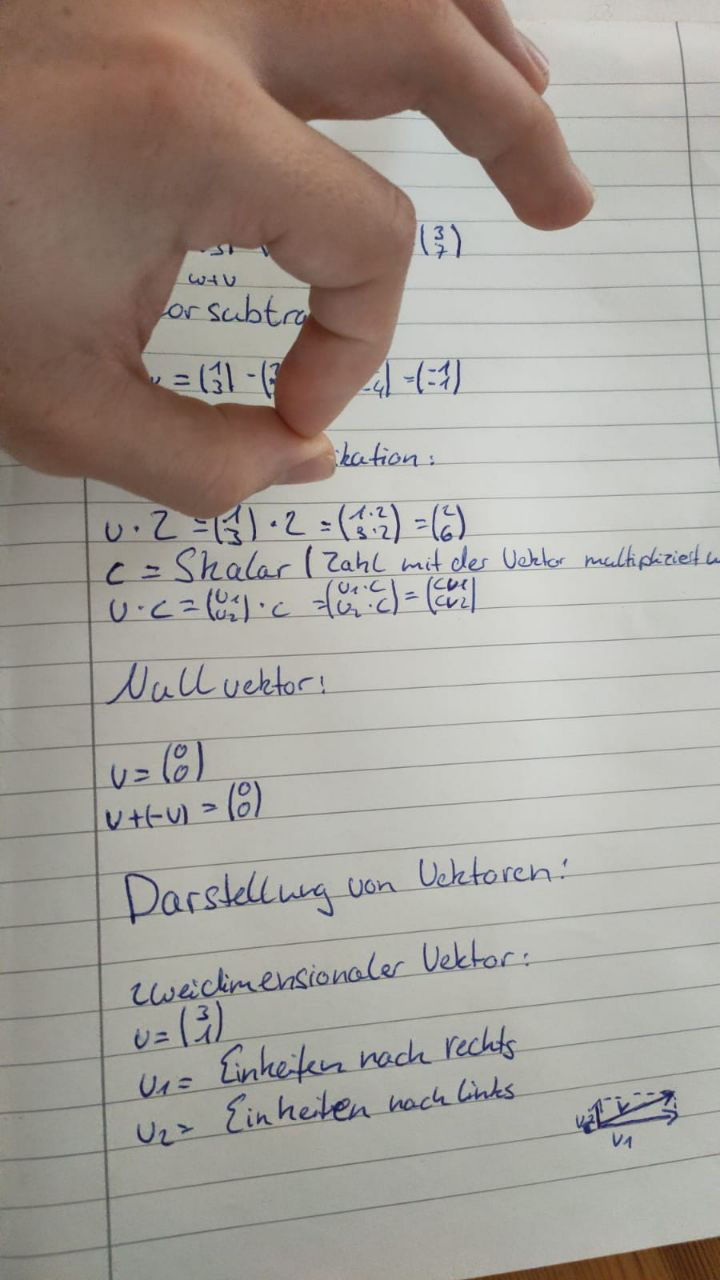 (3 7)
w+v
or subtra
= (1 3) - ( = (-1 -1)
ikation:
v · 2 = (1 3) · 2 = (1·2 3·2) = (2 6)
c = Skalar / Zahl mit der Vektor multipliziert
v · c = (v1 v2) · c = (v1·c v2·c) = (cv1 cv2)
Nullvektor:
v = (0 0)
v+(-v) = (0 0)
Darstellung von Vektoren:
zweidimensionaler Vektor:
v = (3 1)
v1 = Einheiten nach rechts
v2 = Einheiten nach links
v2 v
v1